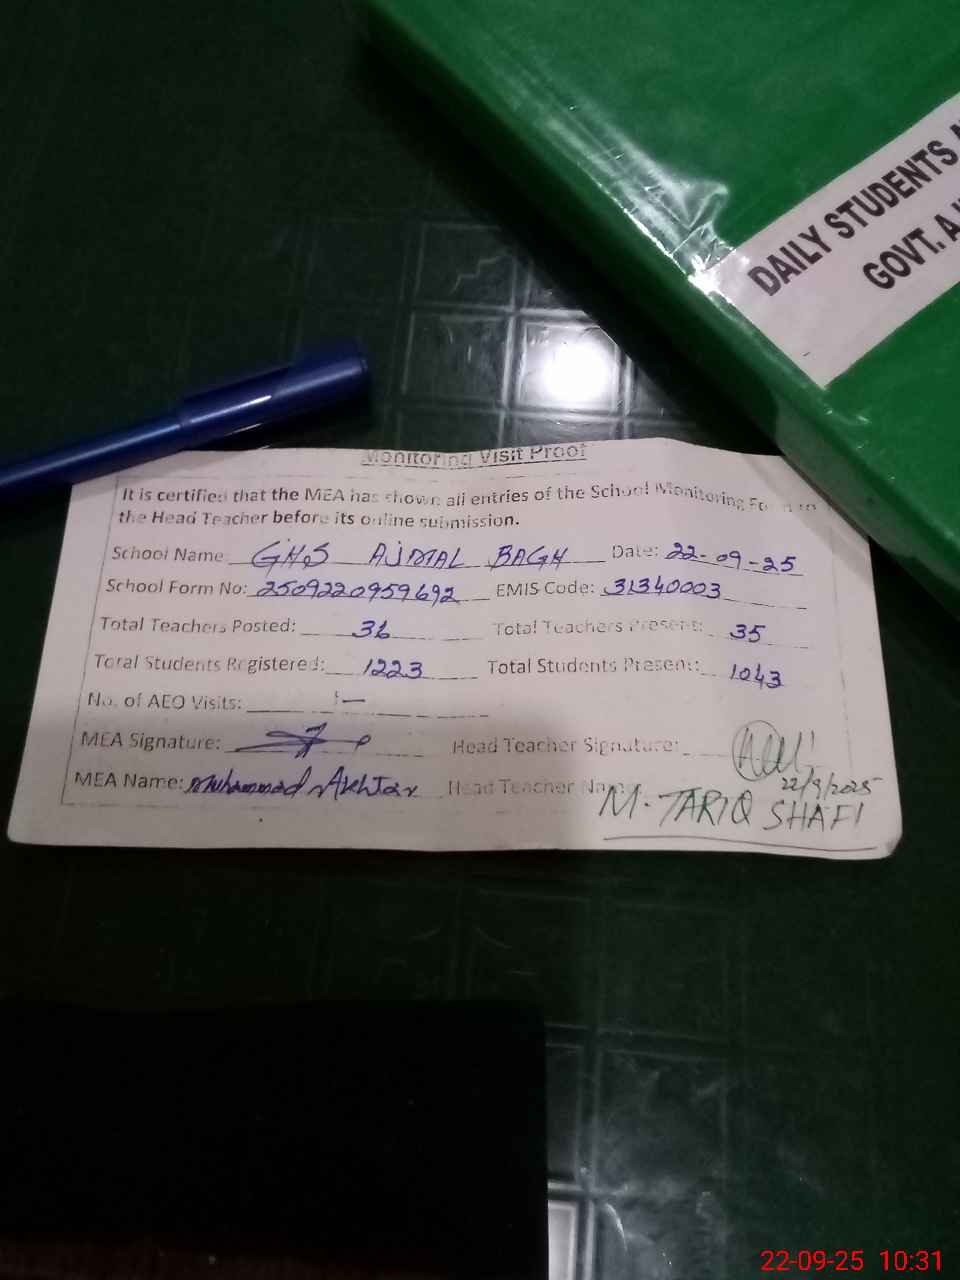 DAILY STUDENTS
GOVT.
Monitoring Visit Proof
It is certified that the MEA has shown all entries of the School Monitoring Form to
the Head Teacher before its online submission.
School Name: GHS AJMAL BAGH Date: 22-09-25
School Form No: 2509220959692 EMIS Code: 31340003
Total Teachers Posted: 36 Total Teachers Present: 35
Total Students Registered: 1223 Total Students Present: 1043
No. of AEO Visits: —
MEA Signature: Head Teacher Signature:
22/9/2025
MEA Name: Muhammad Akhtar Head Teacher Name
M. TARIQ SHAFI
22-09-25 10:31